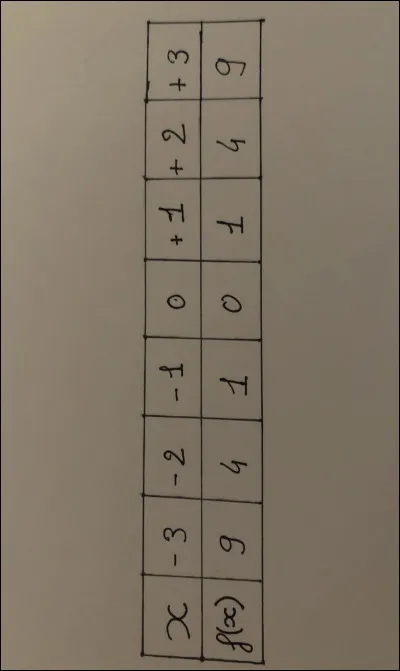 x -3 -2 -1 0 +1 +2 +3
f(x) 9 4 1 0 1 4 9